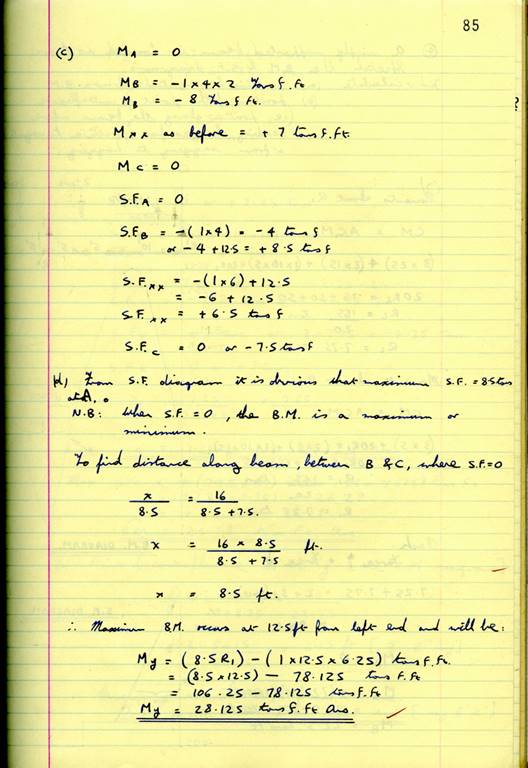 85
(c) MA = 0
MB = -1×4×2 Tonsf.Ft
MB = -8 Tonsf Ft.
Mxx as before = +7 tonsf.ft
MC = 0
S.F.A = 0
S.F.B = -(1×4) = -4 tonsf
or -4+12.5 = +8.5 tonsf
S.F.xx = -(1×6)+12.5
= -6 + 12.5
S.F.xx = +6.5 tonsf
S.F.C = 0 or -7.5 tonsf
(d) From S.F. diagram it is obvious that maximum S.F. = 8.5 tons
N.B: When S.F. = 0, the B.M. is a maximum or
minimum.
To find distance along beam, between B & C, where S.F=0
x/8.5 = 16/8.5 + 7.5.
x = 16 × 8.5/8.5 + 7.5 ft.
x = 8.5 ft.
∴ Maximum B.M. occurs at 12.5ft from left end and will be:
My = (8.5R1) - (1×12.5×6.25) tonsf.Ft.
= (8.5×12.5) - 78.125 tonsf.Ft
= 106.25 - 78.125 tonsf.Ft
My = 28.125 tonsf.Ft Ans.